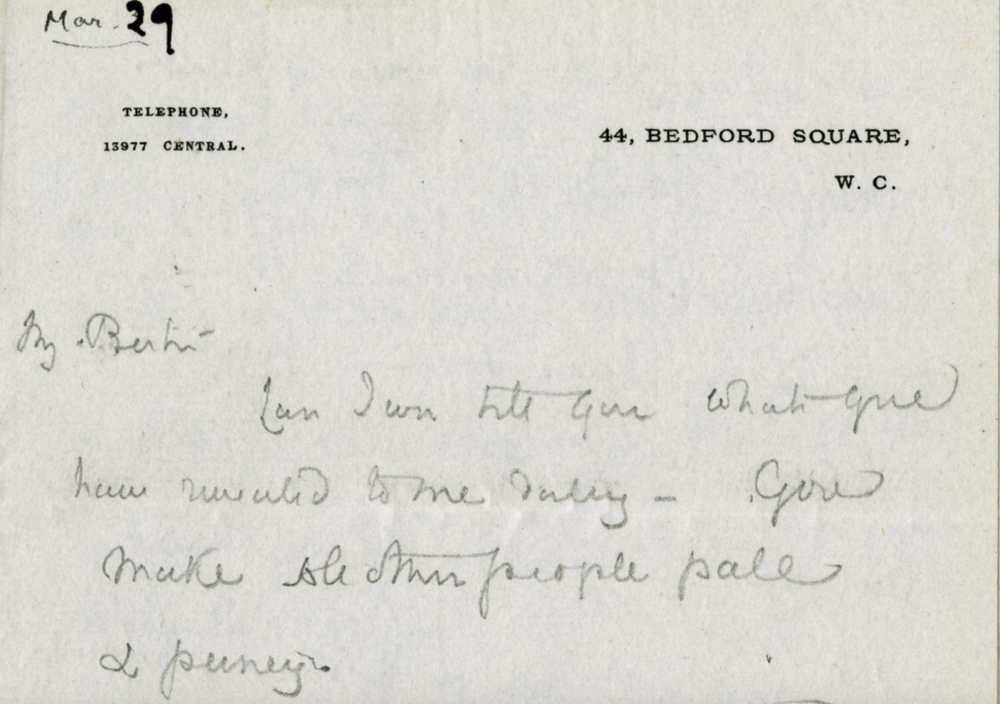 Mar. 29
TELEPHONE,
13977 CENTRAL.
44, BEDFORD SQUARE,
W. C.
My Bertie
Can I ever tell you what you
have revealed to me today – You
make all other people pale
& puney.